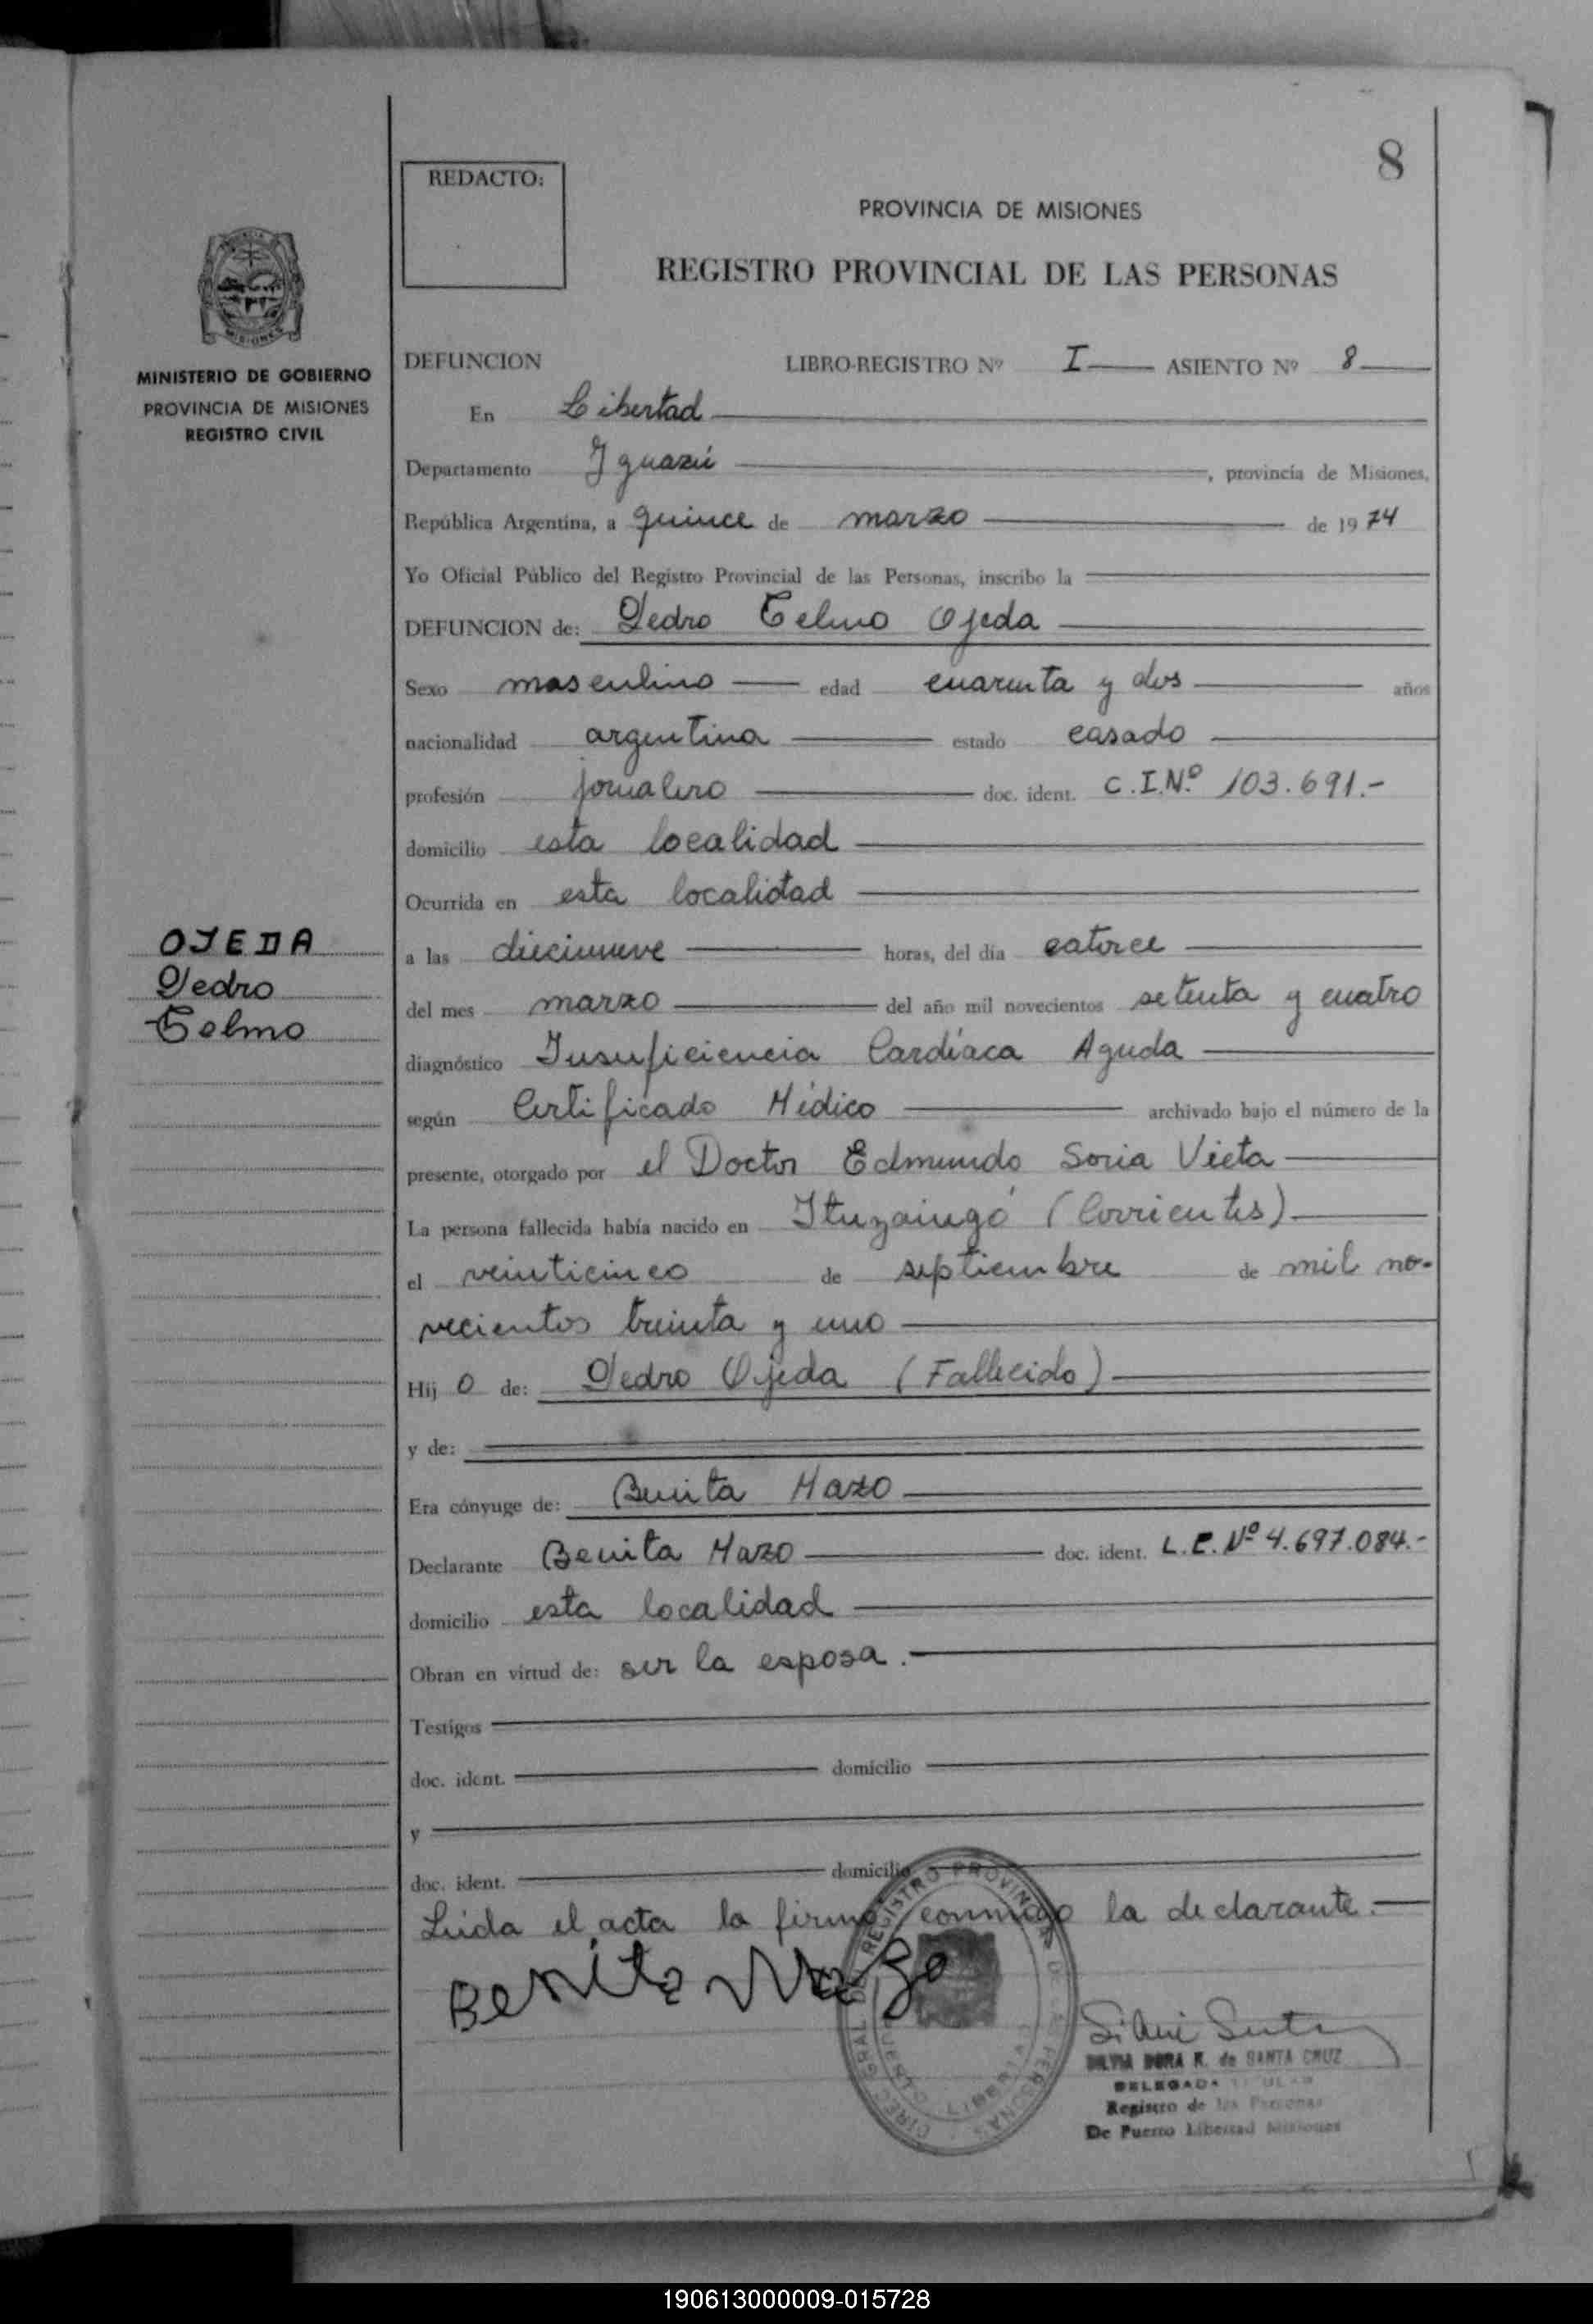 8
REDACTO:
PROVINCIA DE MISIONES
REGISTRO PROVINCIAL DE LAS PERSONAS
MISIONES
MINISTERIO DE GOBIERNO
PROVINCIA DE MISIONES
REGISTRO CIVIL
DEFUNCION LIBRO-REGISTRO Nº I ASIENTO Nº 8
En Libertad
Departamento Iguazú, provincia de Misiones,
República Argentina, a quince de marzo de 1974
Yo Oficial Público del Registro Provincial de las Personas, inscribo la
DEFUNCION de: Pedro Telmo Ojeda
Sexo masculino edad cuarenta y dos años
nacionalidad argentina estado casado
profesión jornalero doc. ident. C.I.Nº 103.691.-
domicilio esta localidad
Ocurrida en esta localidad
OJEDA
Pedro
Telmo
a las diecinueve horas, del día catorce
del mes marzo del año mil novecientos setenta y cuatro
diagnóstico Insuficiencia Cardíaca Aguda
según Certificado Médico archivado bajo el número de la
presente, otorgado por el Doctor Edmundo Soria Vieta
La persona fallecida había nacido en Ituzaingó (Corrientes)
el veinticinco de septiembre de mil no-
vecientos treinta y uno
Hij o de: Pedro Ojeda (Fallecido)
y de:
Era cónyuge de: Benita Mazo
Declarante Benita Mazo doc. ident. L.C. Nº 4.697.084.-
domicilio esta localidad
Obran en virtud de: ser la esposa.
Testigos
doc. ident. domicilio
y
doc. ident. domicilio
Leida el acta la firma conmigo la declarante.
Benita Mazo
DIREC. GRAL. DEL REGISTRO PROVINCIAL DE LAS PERSONAS
SILVIA DORA K. de SANTA CRUZ
DELEGADA TITULAR
Registro de las Personas
De Puerto Libertad Misiones
190613000009-015728